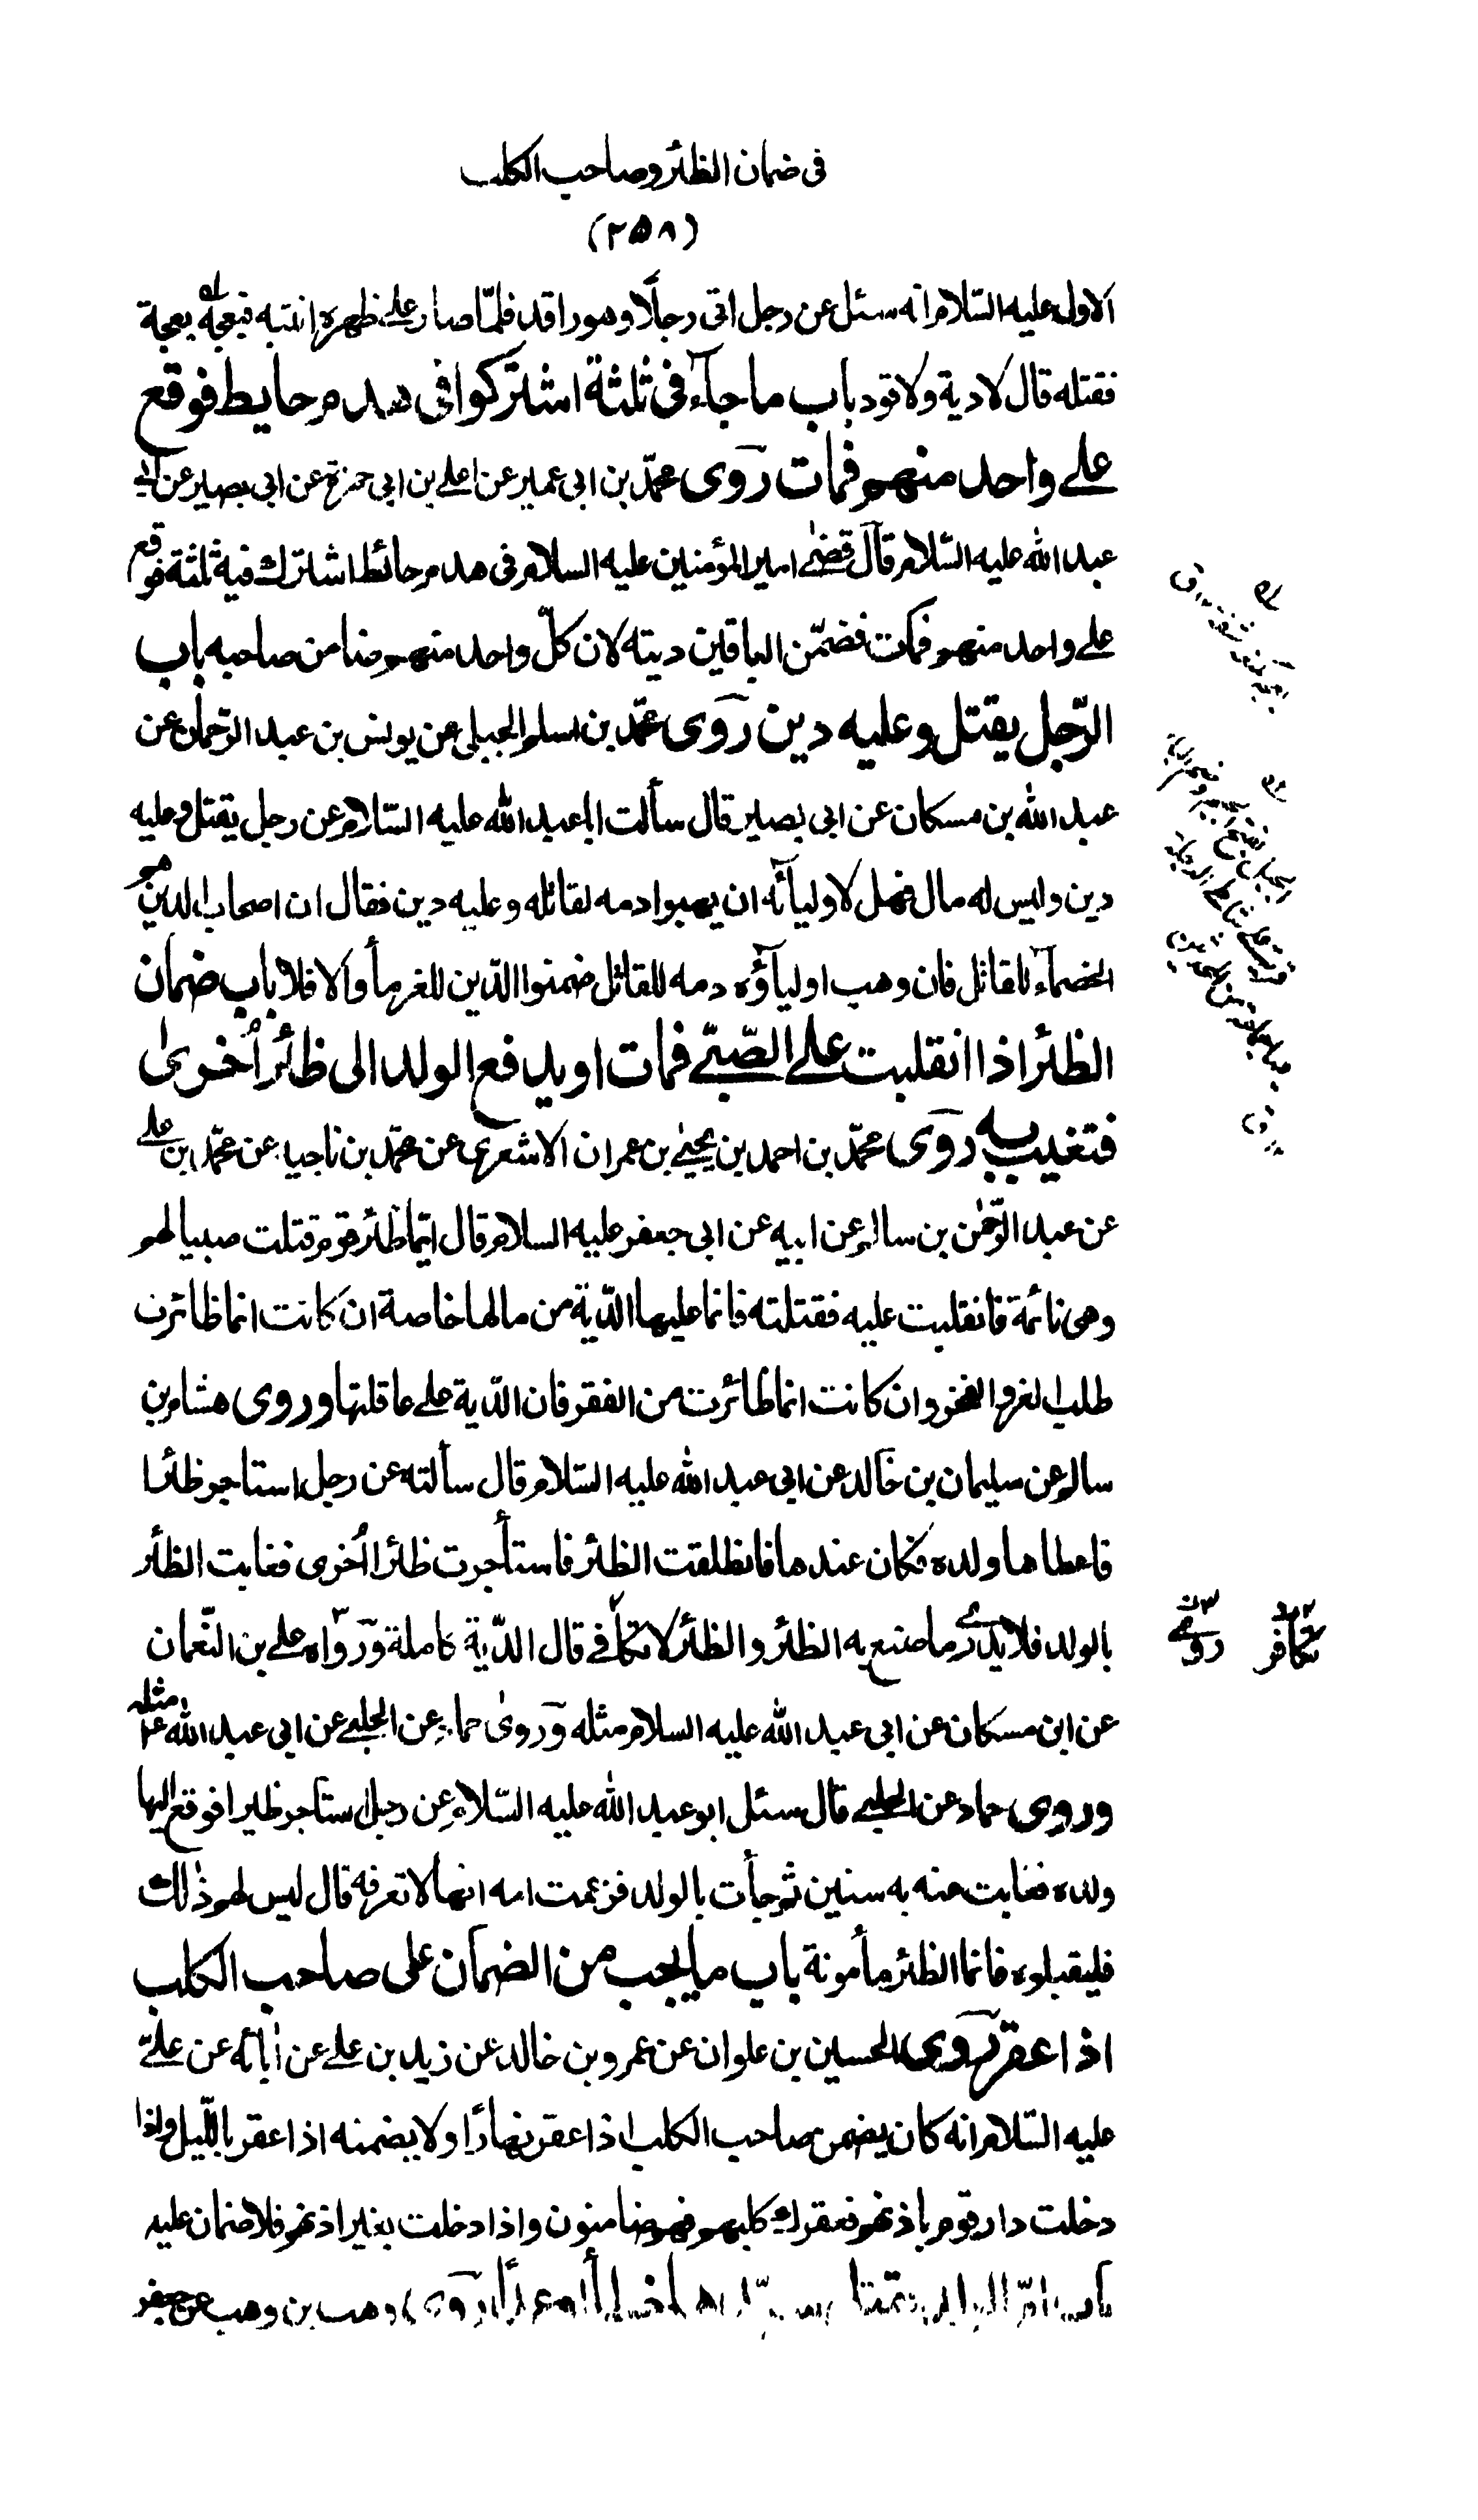 فى ضمان الظئر وصاحب الكلب
(٢٥٨)
الاول عليه السّلام انه سئل عن رجل اتى رجلًا وهو راقد فلمّا صار على ظهره انتبه فبعجه بعجة
فقتله قال لا دية ولا قود باب ما جآء فى ثلثة اشتركوا فى هدم حايط فوقع
على واحد منهم فمات روى محمّد بن ابى عمير عن على بن ابى حمزة عن ابى بصير عن ابى
عبد الله عليه السّلام قال قضى امير المؤمنين عليه السلام فى هدم حائط اشترك فيه ثلثة فوقع
على واحد منهم فمات فضمّن الباقين ديته لان كلّ واحد منهم ضامن صاحبه باب
الرّجل يقتل وعليه دين روى محمّد بن اسلم الجبلى عن يونس بن عبد الرّحمان عن
عبد الله بن مسكان عن ابى بصير قال سألت ابا عبد الله عليه السّلام عن رجل يقتل وعليه
دين وليس له مال فهل لاوليآئه ان يهبوا دمه لقاتله وعليه دين فقال ان اصحاب الدين هم
الخصمآء للقاتل فان وهب اوليآؤه دمه للقاتل ضمنوا الدّين للغرمآء والا فلا باب ضمان
الظئر اذا انقلبت على الصّبىّ فمات او يدفع الولد الى ظائر اُخرىٰ
فتغيب به روى محمّد بن احمد بن يحيىٰ بن عمران الاشعرى عن محمّد بن ناجيه عن محمّد بن على
عن عبد الرّحمٰن بن سالم عن ابيه عن ابى جعفر عليه السلام قال ايّما ظئر قوم قتلت صبيا لهم
وهى نائمة فانقلبت عليه فقتلته فانما عليها الدّية من مالها خاصة ان كانت انما ظائرت
طلب العز والفخر وان كانت انما ظائرت من الفقر فان الدّية على عاقلتها وروى هشام بن
سالم عن سليمان بن خالد عن ابى عبد الله عليه السّلام قال سألته عن رجل استاجر ظئرا
فاعطاها ولده فكان عندها فانطلقت الظئر فاستأجرت ظئرا اُخرى فغابت الظئر
بالولد فلا يدرى ما صنع به الظئر والظئر لا تكافى قال الدّية كاملة وروَاه على بن النّعمان
عن ابن مسكان عن ابى عبد الله عليه السلام مثله وروىٰ حماد عن الحلبى عن ابى عبد الله ع مثله
وروى حماد عن الحلبى قال سئل ابو عبد الله عليه السّلام عن رجل استاجر ظيرا فوقع اليها
ولده فغابت عنه به سنين ثم جأت بالولد فزعمت امه انها لا تعرفه قال ليس لهم ذٰلك
فليقبلوه فانما الظئر مأمونة باب ما يجب من الضمان على صاحب الكلب
اذا عقر روى الحسين بن علوان عن عمرو بن خالد عن زيد بن على عن اٰبائه عن علىّ
عليه السّلام انه كان يضمن صاحب الكلب اذا عقر نهارًا ولا يضمنه اذا عقر بالليل واذا
دخلت دار قوم باذنهم فعقرك كلبهم فهم ضامنون واذا دخلت بغير اذنهم فلا ضمان عليهم
باب روى وهب بن وهب عن جعفر